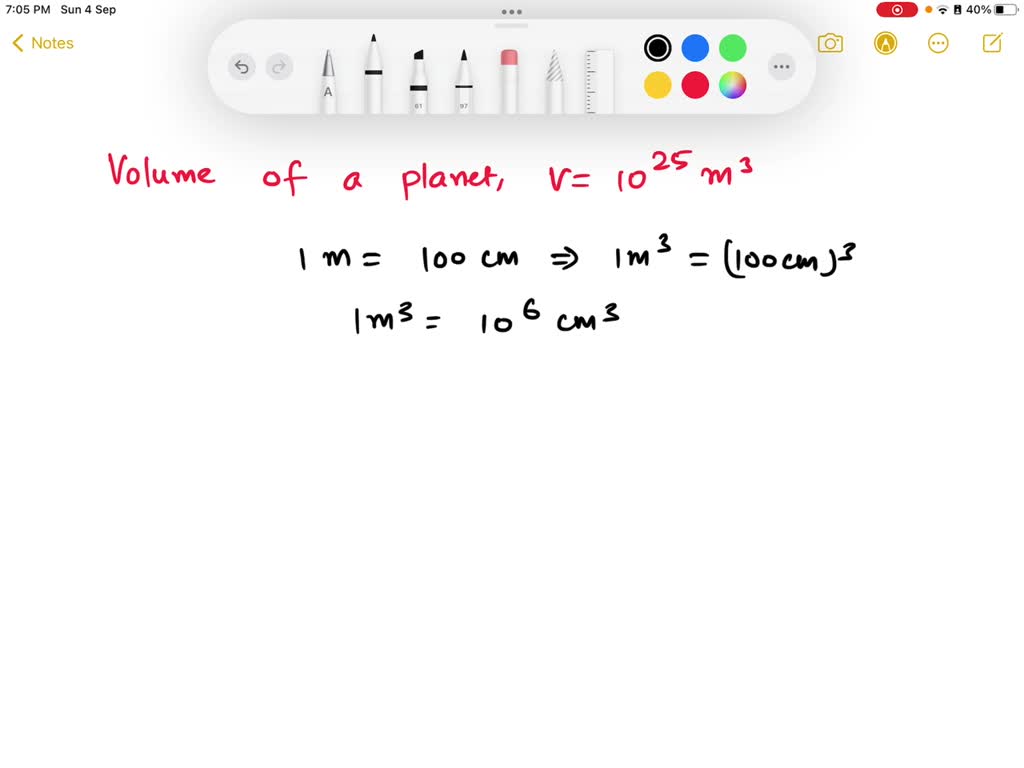 7:05 PM Sun 4 Sep
40%
Notes
A
61
97
Volume of a planet, V= 10²⁵ m³
1 m = 100 cm ⇒ 1m³ = (100cm)³
1m³ = 10⁶ cm³